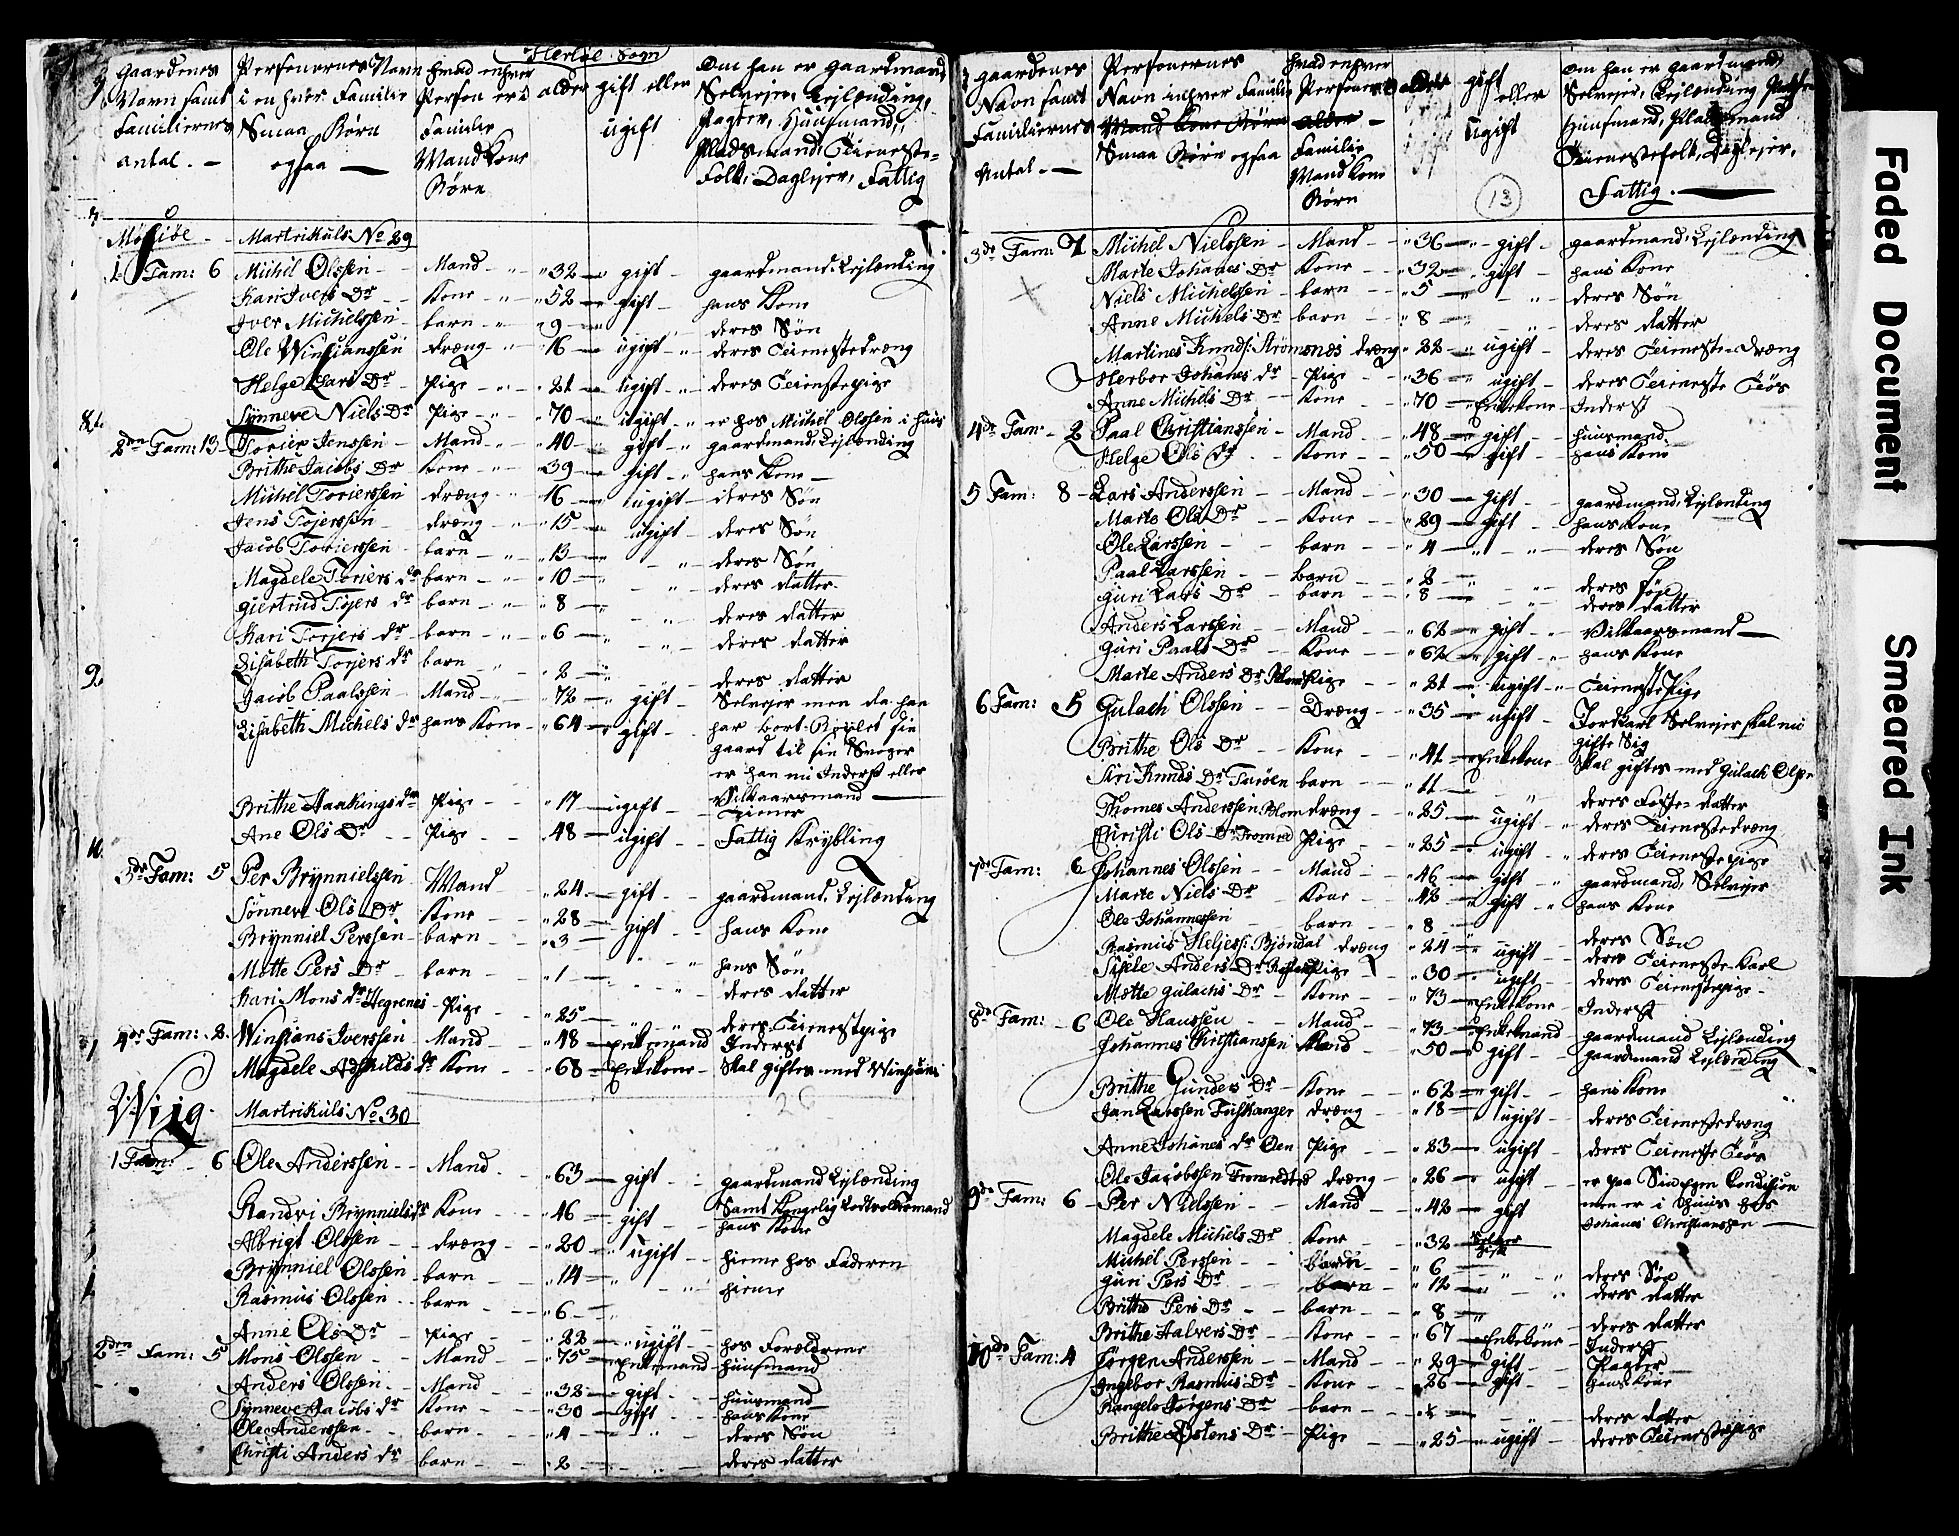 Herløe Sogn
Gaardenes Navn samt Familiernes Antal. —
Personernes Navn i en hver Familie Smaa Børn ogsaa —
hvad enhver Person er i Familie Mand Kone Børn
alder
gift eller ugift
Om han er gaardmand, Selvejer, Lejlænding, Pagter, Huusmand, Pladsmand, Tieneste-Folk, Daglejer, Fattig
Martrikuls No 29
1 Fam: 6 Michel Olssen - Mand - 32 - gift - gaardmand Lejlænding
Kari Ivers Dr - Kone - 52 - gift - hans Kone
Iver Michelssen - barn - 9 - deres Søn
Ole Winsianssen - dræng - 16 - ugift - deres Tienestedræng
Helge Lars Dr - Pige - 21 - ugift - deres Tienestepige
Synneve Niels Dr - Pige - 70 - ugift - er hos Michel Olssen i huus
2den Fam: 13 Torier Jenssen - Mand - 40 - gift - gaardmand Lejlænding
Brithe Jacobs Dr - Kone - 39 - gift - hans Kone
Michel Torierssen - dræng - 16 - ugift - deres Søn
Jens Tojerssen - dræng - 15 - ugift - deres Søn
Jacob Torierssen - barn - 13 - deres Søn
Magdele Toriers dr - barn - 10 - deres datter
Giertrud Tojers dr - barn - 8 - deres datter
Kari Torjers dr - barn - 6 - deres datter
Lisabeth Torjers dr - barn - 2 - deres datter
Jacob Paalssen - Mand - 72 - gift - Selvejer men da han
Lisabeth Michels dr - hans Kone - 64 - gift - har bort Bÿxlet sin
gaard til sin Svoger
er han nu Inderst eller
Vilkaarsmand
Brithe Haakings dr - Pige - 17 - ugift - Tiener
Ane Ols Dr - Pige - 48 - ugift - Fattig Krybling
3de Fam: 5 Per Brynnielssen - Mand - 24 - gift - gaardmand Lejlænding
Sønneve Ols Dr - Kone - 28 - gift - hans Kone
Brynniel Perssen - barn - 3 - hans Søn
Mette Pers Dr - barn - 1 - deres datter
Kari Mons dr Hegrenes - Pige - 25 - deres Tienestepige
4de Fam: 2 Winsians Iverssen - Mand - 48 - Enkemand - Inderst
Magdele Aschilds dr - Kone - 68 - Enkekone - Skal giftes med Winsians
Wiig. Martrikuls No 30
1 Fam: 6 Ole Anderssen - Mand - 63 - gift - gaardmand Lejlænding
Samt Kongelig
Randvi Brynniels dr - Kone - 46 - gift - hans Kone
Albrigt Olssen - dræng - 20 - ugift - hieme hos Faderen
Brynniel Olssen - barn - 14 - hieme
Rasmus Olssen - barn - 6
Anne Ols Dr - Pige - 22 - ugift - hos Forældrene
2den Fam: 5 Mons Olssen - Mand - 75 - Enkemand - huusmand
Anders Olssen - Mand - 38 - gift - huusmand
Synneve Jacobs dr - Kone - 30 - gift - hans Kone
Ole Anderssen - barn - 4 - deres Søn
Christi Anders dr - barn - 2 - deres datter
Gaardenes Navn samt Familiernes Antal. —
Personernes Navn i enhver Familie Smaa Børn ogsaa
hvad enhver Person er i Familie Mand Kone Børn
gift eller ugift
13
Om han er gaardmand, Selvejer, Lejlænding Pagter Huusmand, Pladsmand Tienestefolk, Daglejer, Fattig. —
3de Fam: 7 Michel Nielssen - Mand - 36 - gift - gaardmand Lejlænding
Marte Johanes Dr - Kone - 32 - gift - hans Kone
Niels Michelssen - barn - 5 - deres Søn
Anne Michels Dr - barn - 8 - deres datter
Martines Knuds: Strømsnes dræng - 22 - ugift - deres Tieneste-dræng
Herbor Johanes dr - Pige - 36 - ugift - deres Tieneste Tøs
Anne Michels Dr - Kone - 70 - Enkekone - Inderst
4de Fam: 2 Paal Christianssen - Mand - 48 - gift - huusmand
Helge Ols dr - Kone - 50 - gift - hans Kone
5 Fam: 8 Lars Anderssen - Mand - 30 - gift - gaardmand Lejlænding
Marte Ols Dr - Kone - 29 - gift - hans Kone
Ole Larssen - barn - 4 - deres Søn
Paal Larssen - barn - 2 - deres Søn
Guri Lars Dr - barn - 8 - deres datter
Anders Larssen - Mand - 62 - gift - Vilkaarsmand
Guri Paals Dr - Kone - 62 - gift - hans Kone
Marte Anders Dr Pige - 21 - ugift - Tienestepige
6 Fam: 5 Gulach Olssen - Dræng - 35 - ugift - Selvejer skal nu
gifte Sig
Brithe Ols Dr - Kone - 41 - Enkekone - Skal giftes med Gulach Olss:
Siri Knuds Dr barn - 11 - deres Foste-datter
Thomes Anderssen Blom dræng - 25 - ugift - deres Tienestedræng
Christi Ols Dr Pige - 25 - ugift - deres Tienestepige
7de Fam: 6 Johannes Olssen - Mand - 46 - gift - gaardmand, Selvejer
Marte Niels Dr - Kone - 42 - gift - hans Kone
Ole Johannessen - barn - 8 - deres Søn
Rasmus Heljess: Bjøndal dræng - 24 - ugift - deres Tieneste-Karl
Sisele Anders Dr Pige - 30 - ugift - deres Tienestepige
Mette Gulachs Dr - Kone - 73 - Enkekone - Inderst
8de Fam: 6 Ole Hanssen - Mand - 73 - Enkemand - gaardmand Lejlænding
Johannes Christianssen Mand - 50 - gift - gaardmand Lejlænding
Brithe Gunders Dr - Kone - 62 - gift - hans Kone
Jan Larssen dræng - 18 - ugift - deres Tienestedræng
Anne Johanes dr Øen Pige - 23 - ugift - deres Tieneste Tøs
Ole Jacobssen dræng - 26 - ugift - er paa Sin egen Condision
men er i huus hos
Johanes Christianssen
9de Fam: 6 Per Nielssen - Mand - 42 - gift
Magdele Michels Dr - Kone - 32
Michel Perssen - barn - 6 - deres Søn
Guri Pers Dr - barn - 12 - deres datter
Brithe Pers Dr - barn - 8 - deres datter
Brithe Halvers Dr - Kone - 67 - Enkekone - Inderst
10de Fam: 4 Jørgen Anderssen - Mand - 29 - gift - Pagter
Ingebor Rasmus Dr - Kone - 26 - gift - hans Kone
Rangele Jørgens Dr - barn - deres datter
Brithe Østens Dr - Pige - 25 - ugift - deres Tienestepige
Faded Document
Smeared Ink